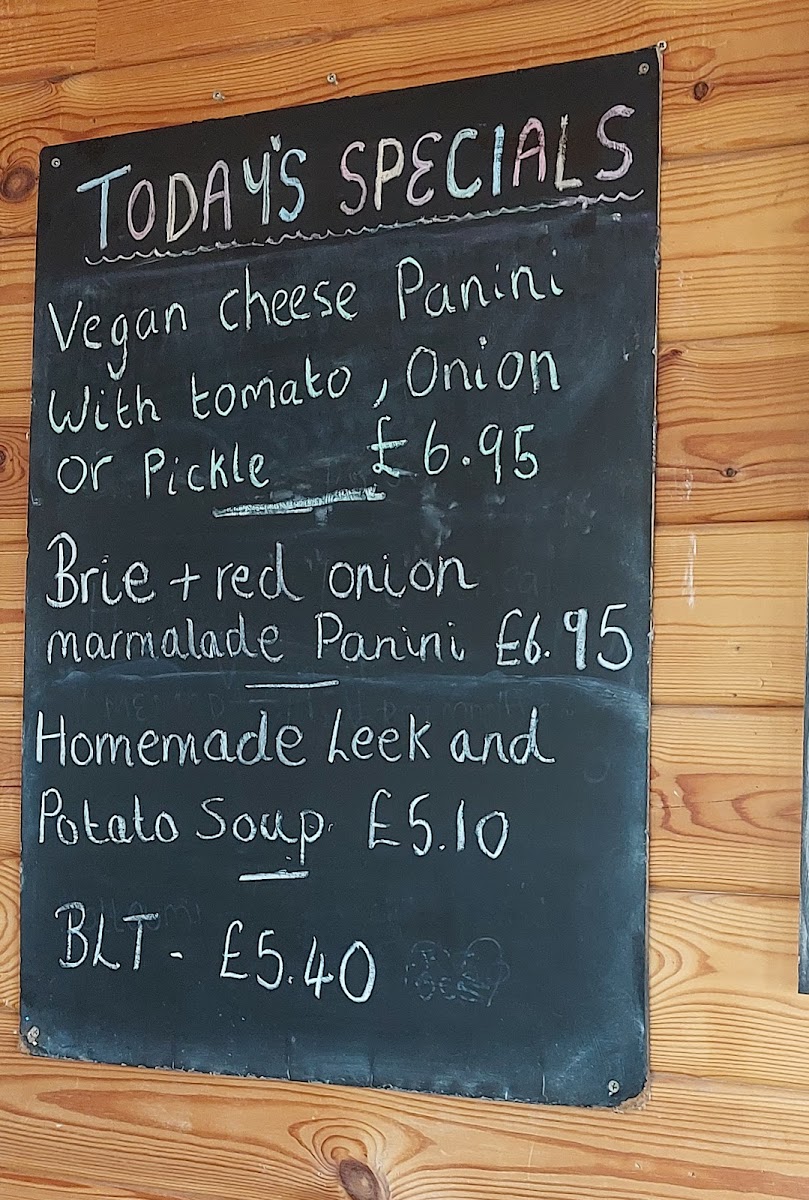 TODAY'S SPECIALS
Vegan cheese Panini
With tomato, Onion
or Pickle £6.95
Brie + red onion
marmalade Panini £6.95
Homemade Leek and
Potato Soup £5.10
BLT - £5.40